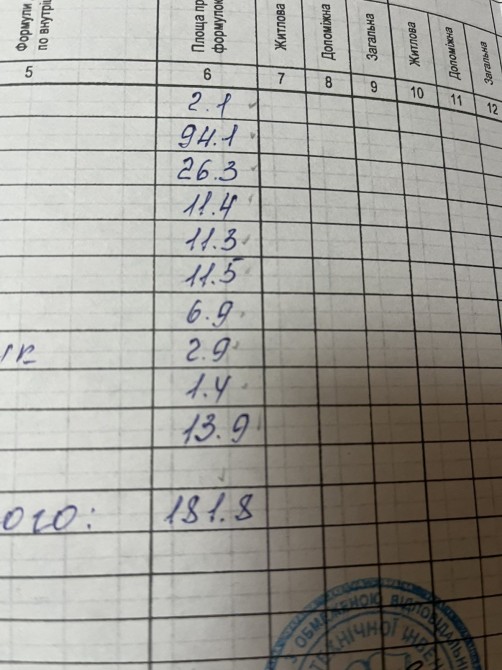 Формули
по внутрі
Площа
формулою
Житлова
Допоміжна
Загальна
Житлова
Допоміжна
Загальна
5 6 7 8 9 10 11 12
2.1
94.1
26.3
11.4
11.3
11.5
6.9
2.9
1.4
13.9
ого: 181.8
ОБМЕЖЕНОЮ ВІДПОВІДАЛЬНІ